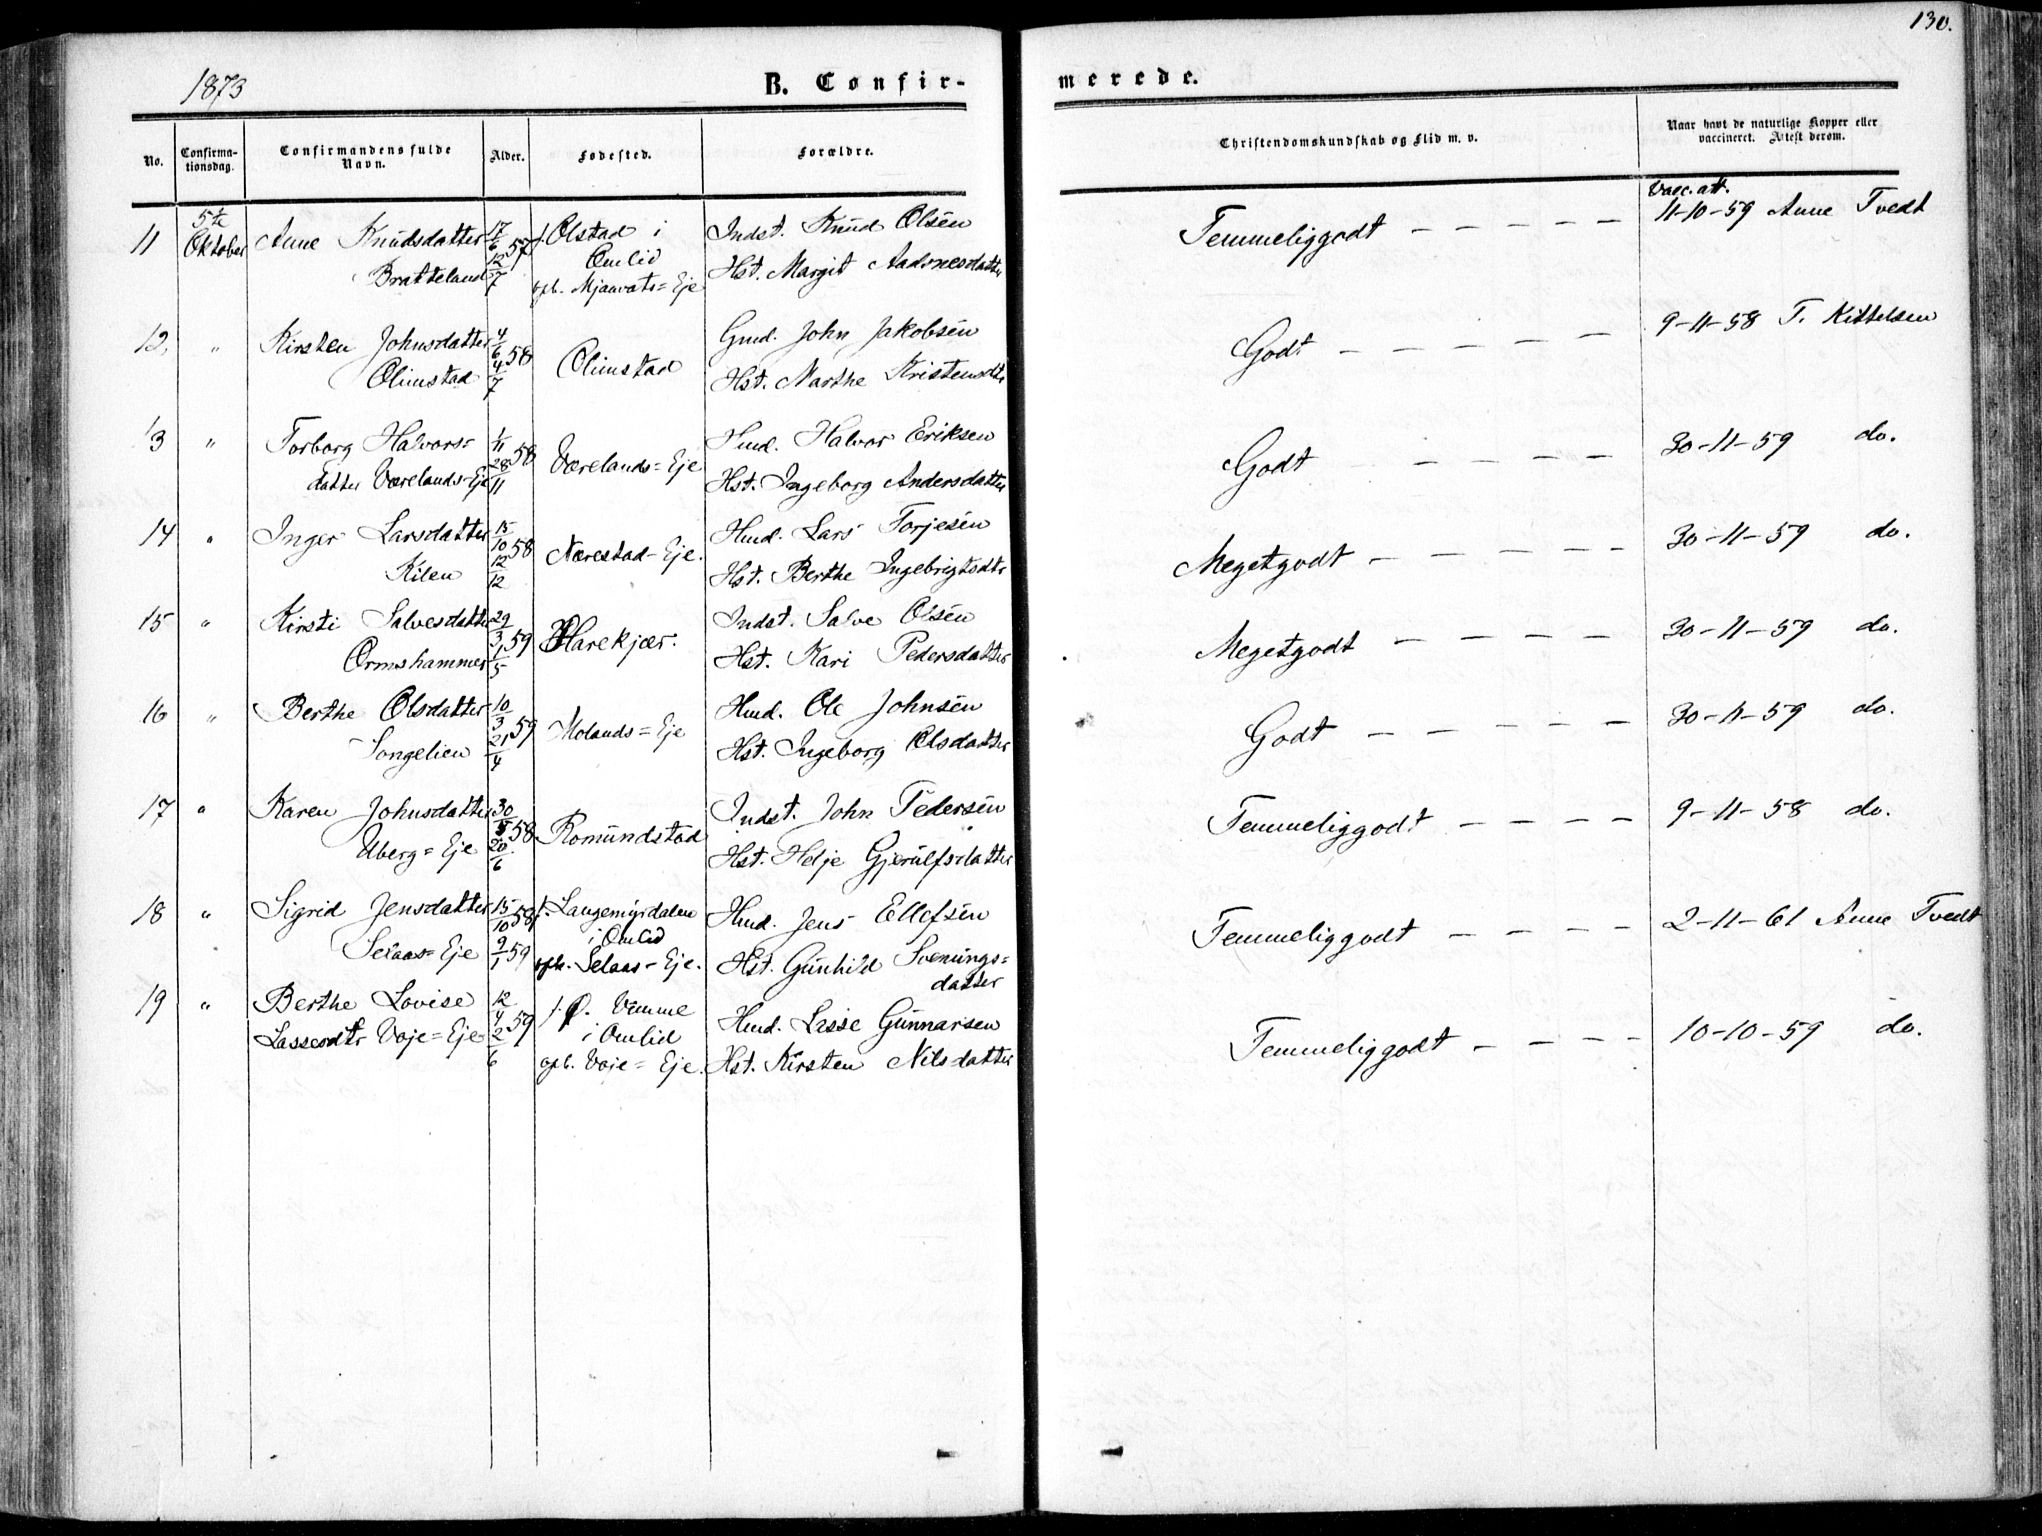 130.
1873
B. Confir-
merede.
No.
Confirma-
tionsdag.
Confirmandens fulde
Navn.
Alder.
Fødested.
Forældre.
Christendomskundskab og Flid m. v.
Naar havt de naturlige Kopper eller
vaccineret. Attest derom.
11 5te Oktober Anne Knudsdatter 17/6 57 f. Olstad i Indst. Knud Olsen Temmeliggodt — — — — Vacc. att. 11-10-59 Anne Tvedt
Bratteland 12/7 Omlid Hst. Margit Aadnesdatter
opb. Mjaavats=Eje
12, " Kirsten Johnsdatter 4/6 58 Olimstad Gmd. John Jakobsen Godt — — — — — 9-11-58 T. Kittelsen
Olimstad 4/7 Hst. Marthe Kristensdtr
13 " Torborg Halvors- 1/11 58 Værelands=Eje Hmd. Halvor Eriksen Godt — — — — 30-11-59 do.
datter Værelands-Eje 28/11 Hst. Ingeborg Andersdatter
14 " Inger Larsdatter 15/10 58 Nærestad-Eje. Hmd. Lars Torjesen Megetgodt — — — — — 30-11-59 do.
Kilen 12/12 Hst. Berthe Ingebrigtsdtr
15 " Kirsti Salvesdatter 29/3 59 Harekjær. Indst. Salve Olsen Megetgodt — — — — — 30-11-59 do.
Ormshammer 1/5 Hst. Kari Pedersdatter
16 " Berthe Olsdatter 10/3 59 Molands=Eje Hmd. Ole Johnsen Godt — — — — — 30-11-59 do.
Songelien 21/4 Hst. Ingeborg Olsdatter
17 " Karen Johnsdatter 30/5 58 Romundstad Indst. John Pedersen Temmeliggodt — — — — 9-11-58 do.
Uberg=Eje 20/6 Hst. Helje Gjerulfsdatter
18 " Sigrid Jensdatter 15/10 58 f. Langemyrdalen Hmd. Jens Ellefsen Temmeliggodt — — — — 2-11-61 Anne Tvedt
Selaas=Eje 9/1 59 i Omlid
opb. Selaas-Eje. Hst. Gunhild Svenings=
datter
19 " Berthe Lovise 12/4 59 f. Ø. Vimme Hmd. Lasse Gunnarsen Temmeliggodt — — — — 10-10-59 do.
Lassesdtr Voje=Eje 2/6 i Omlid
opb. Voje=Eje. Hst. Kirsten Nilsdatter